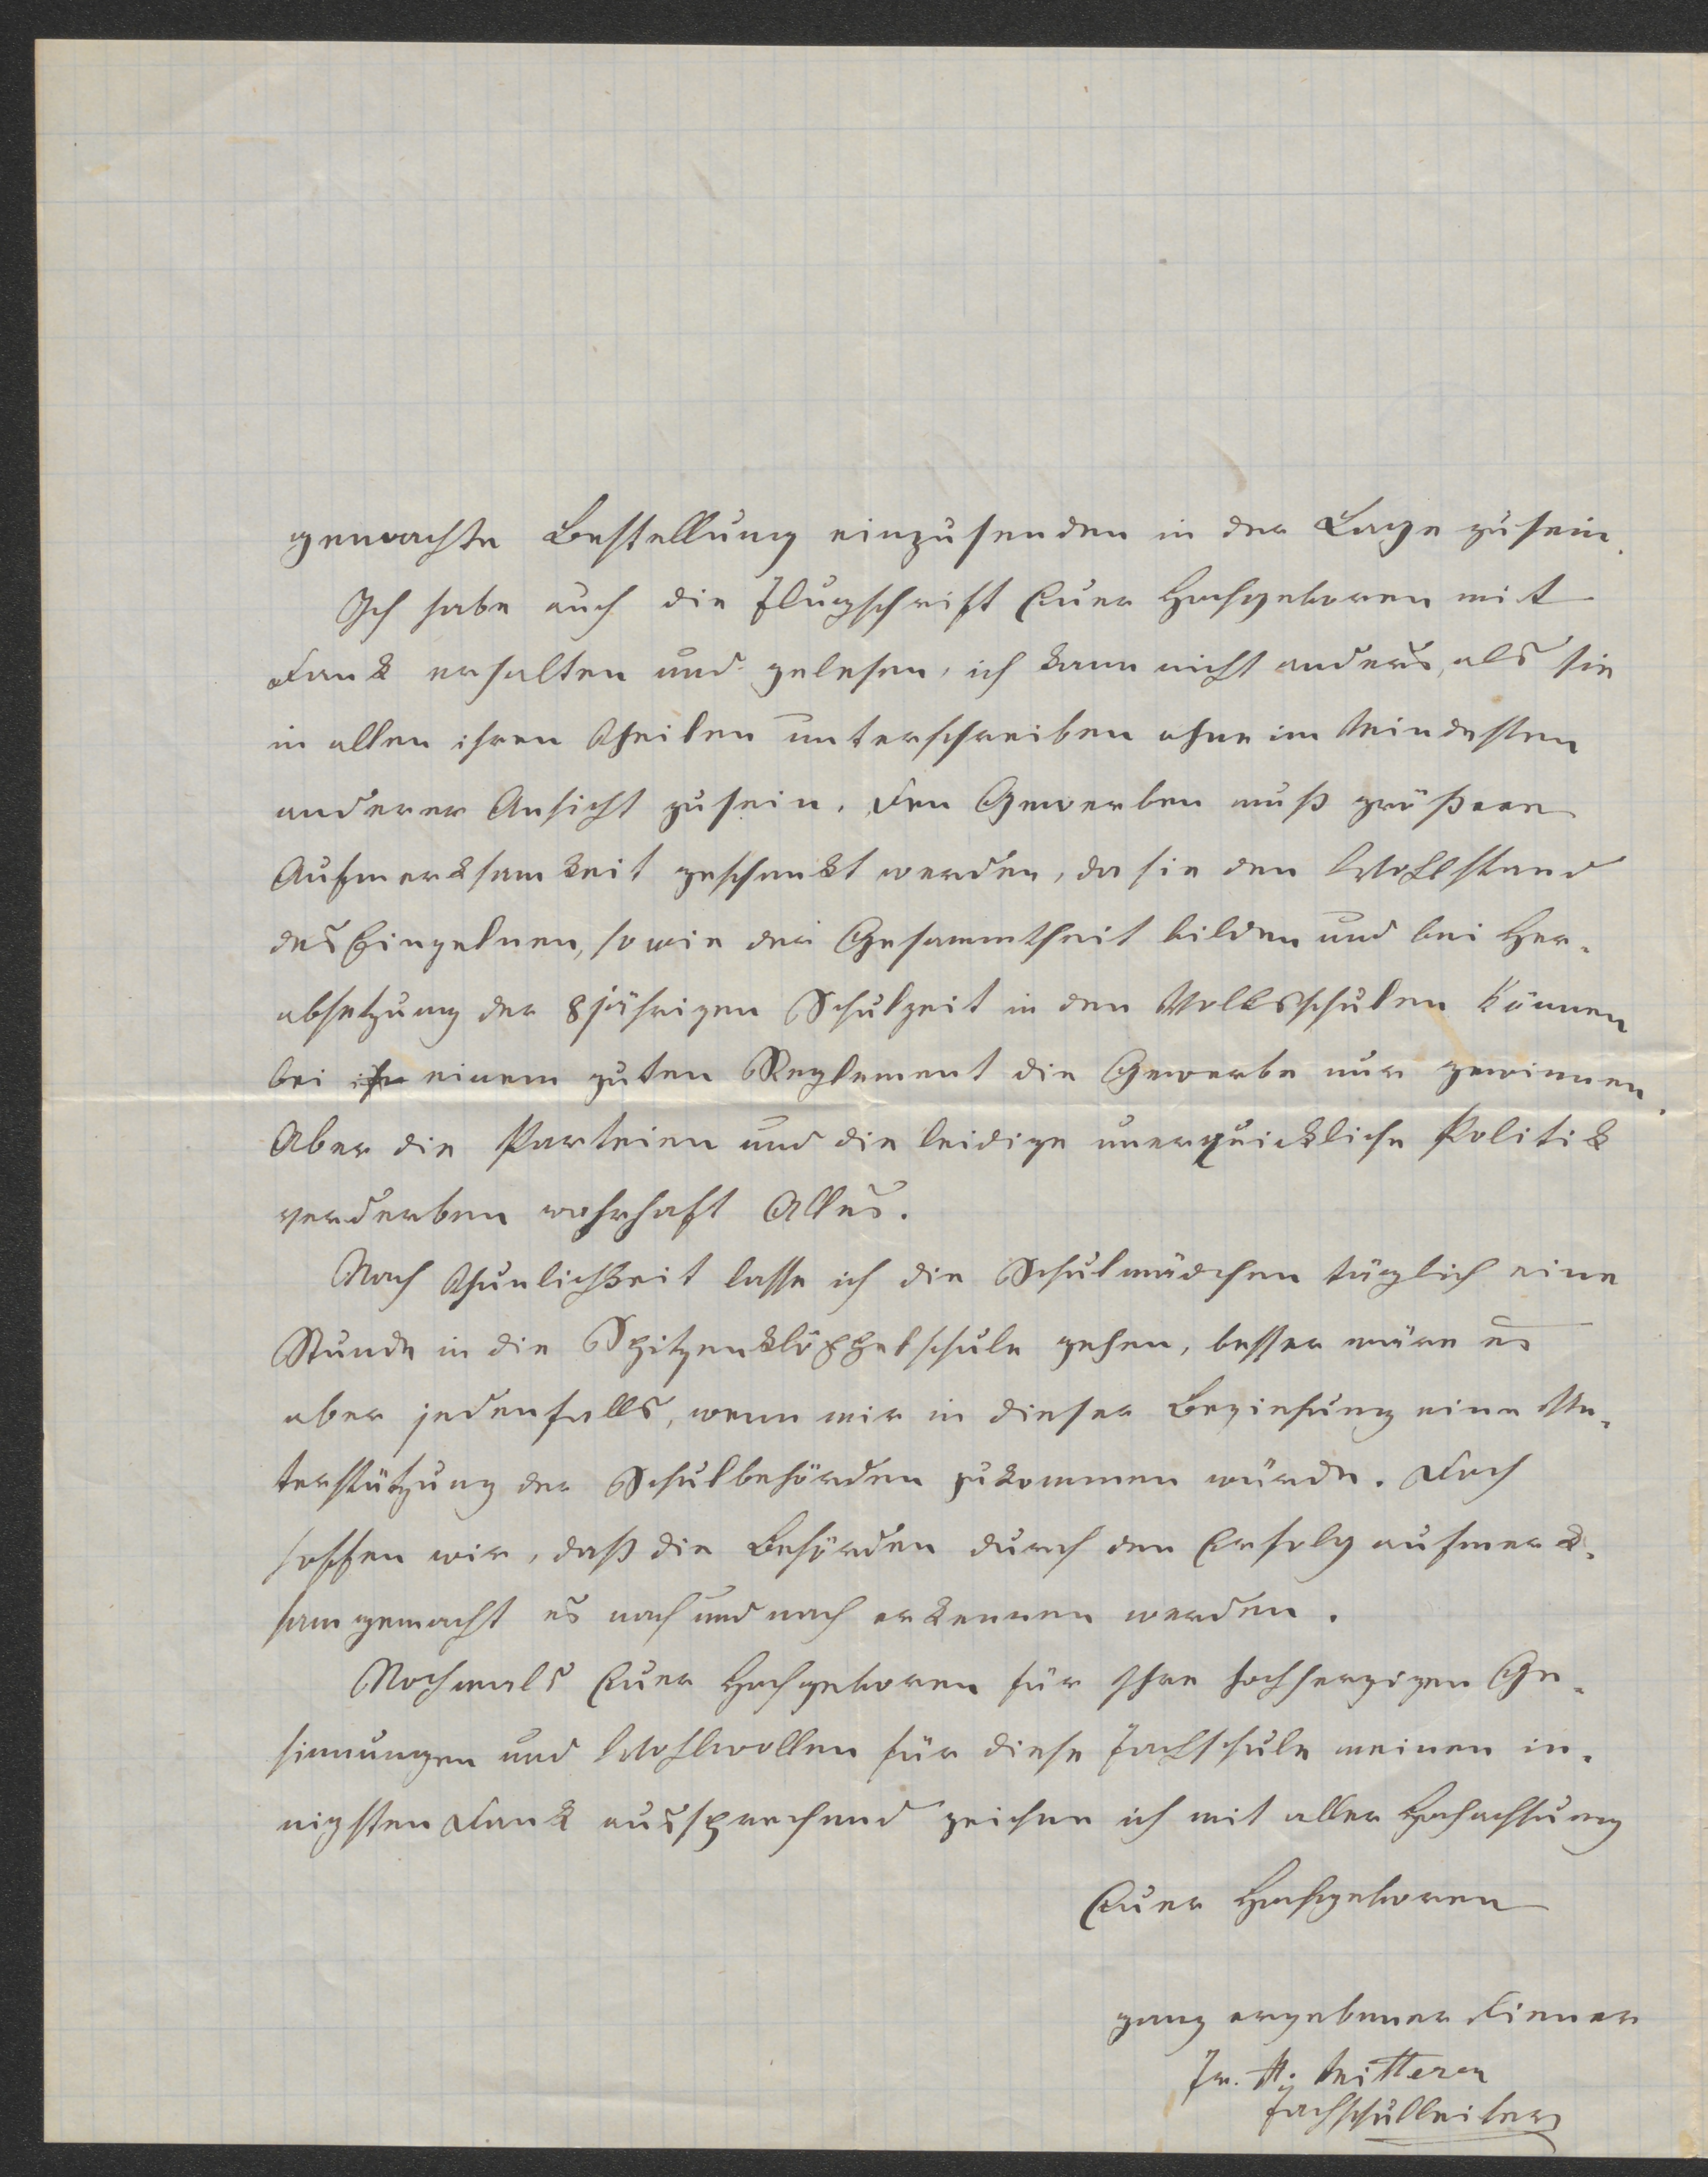 gemachte Bestellung einzusenden in der Lage zu sein.
Ich habe auch die Flugschrift Euer Hochgeboren mit
Dank erhalten und gelesen, ich kann nicht anders, als sie
in allen ihren Theilen unterschreiben ohne im Mindesten
anderer Ansicht zu sein. Den Gewerben muß größere
Aufmerksamkeit geschenkt werden, da sie den Wohlstand
des Einzelnen, sowie der Gesammtheit bilden und bei Her-
absetzung der 8jährigen Schulzeit in den Volksschulen können
bei einem guten Reglement die Gewerbe nur gewinnen.
Aber die Parteien und die leidige unerquickliche Politik
verderben wahrhaft Alles.
Nach Thunlichkeit lasse ich die Schulmädchen täglich eine
Stunde in die Spitzenklöppelschule gehen, besser wäre es
aber jedenfalls, wenn mir in dieser Beziehung eine Un-
terstützung der Schulbehörden zukommen würde. Doch
hoffen wir, daß die Behörden durch den Erfolg aufmerk-
sam gemacht es nach und nach erkennen werden.
Nochmals Euer Hochgeboren für Ihre hochherzigen Ge-
sinnungen und Wohlwollen für diese Fachschule meinen in-
nigsten Dank aussprechend zeichne ich mit aller Hochachtung
Euer Hochgeboren
ganz ergebener Diener
Mitterer
Fachschulleiter